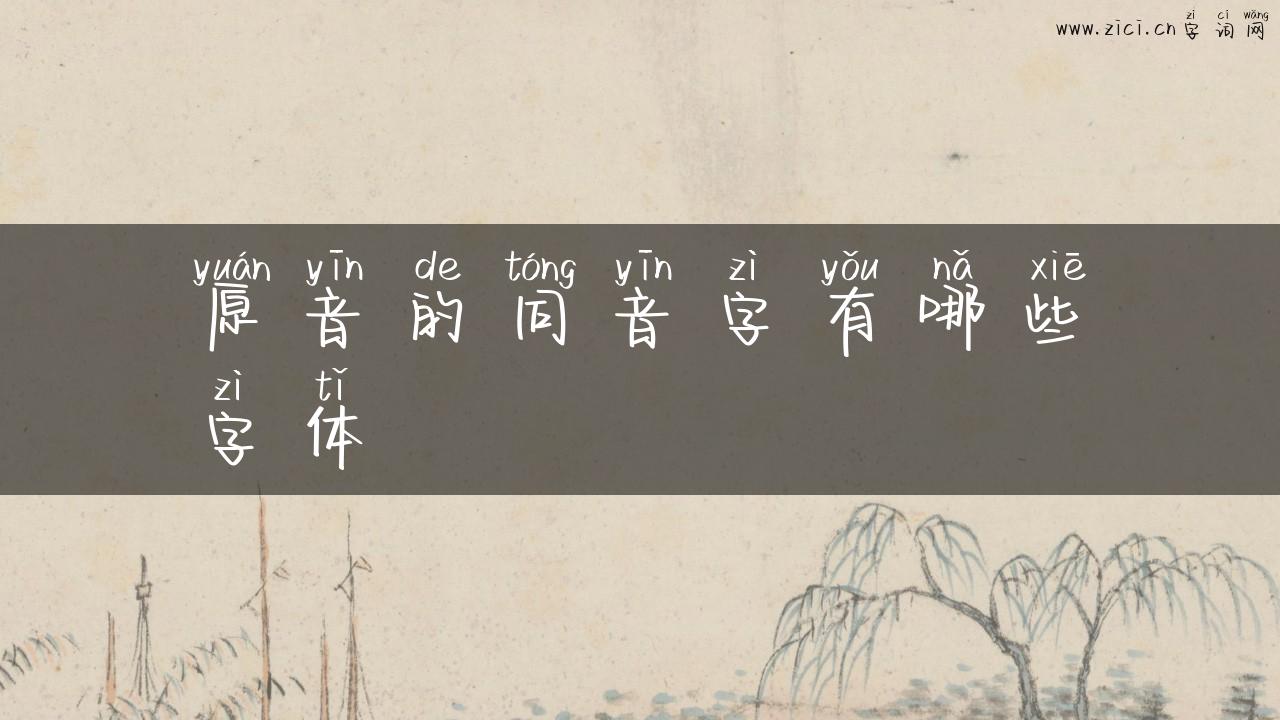 zì cí wǎng
www.zici.cn 字词网
yuán yīn de tóng yīn zì yǒu nǎ xiē
原音的同音字有哪些
zì tǐ
字体